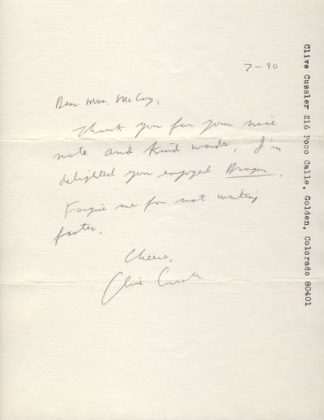 7-90
Dear Mrs. McCoy,
Thank you for your nice
note and kind words. I'm
delighted you enjoyed Dragon.
Forgive me for not writing
faster.
Cheers,
Clive Cussler
Clive Cussler 216 Poco Calle, Golden, Colorado 80401